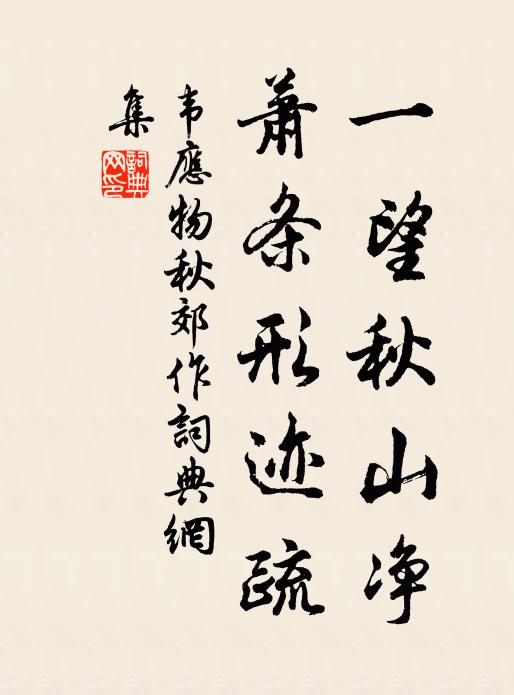 一望秋山净
萧条形迹疏
韦應物秋郊作詞典網
集
詞典网印